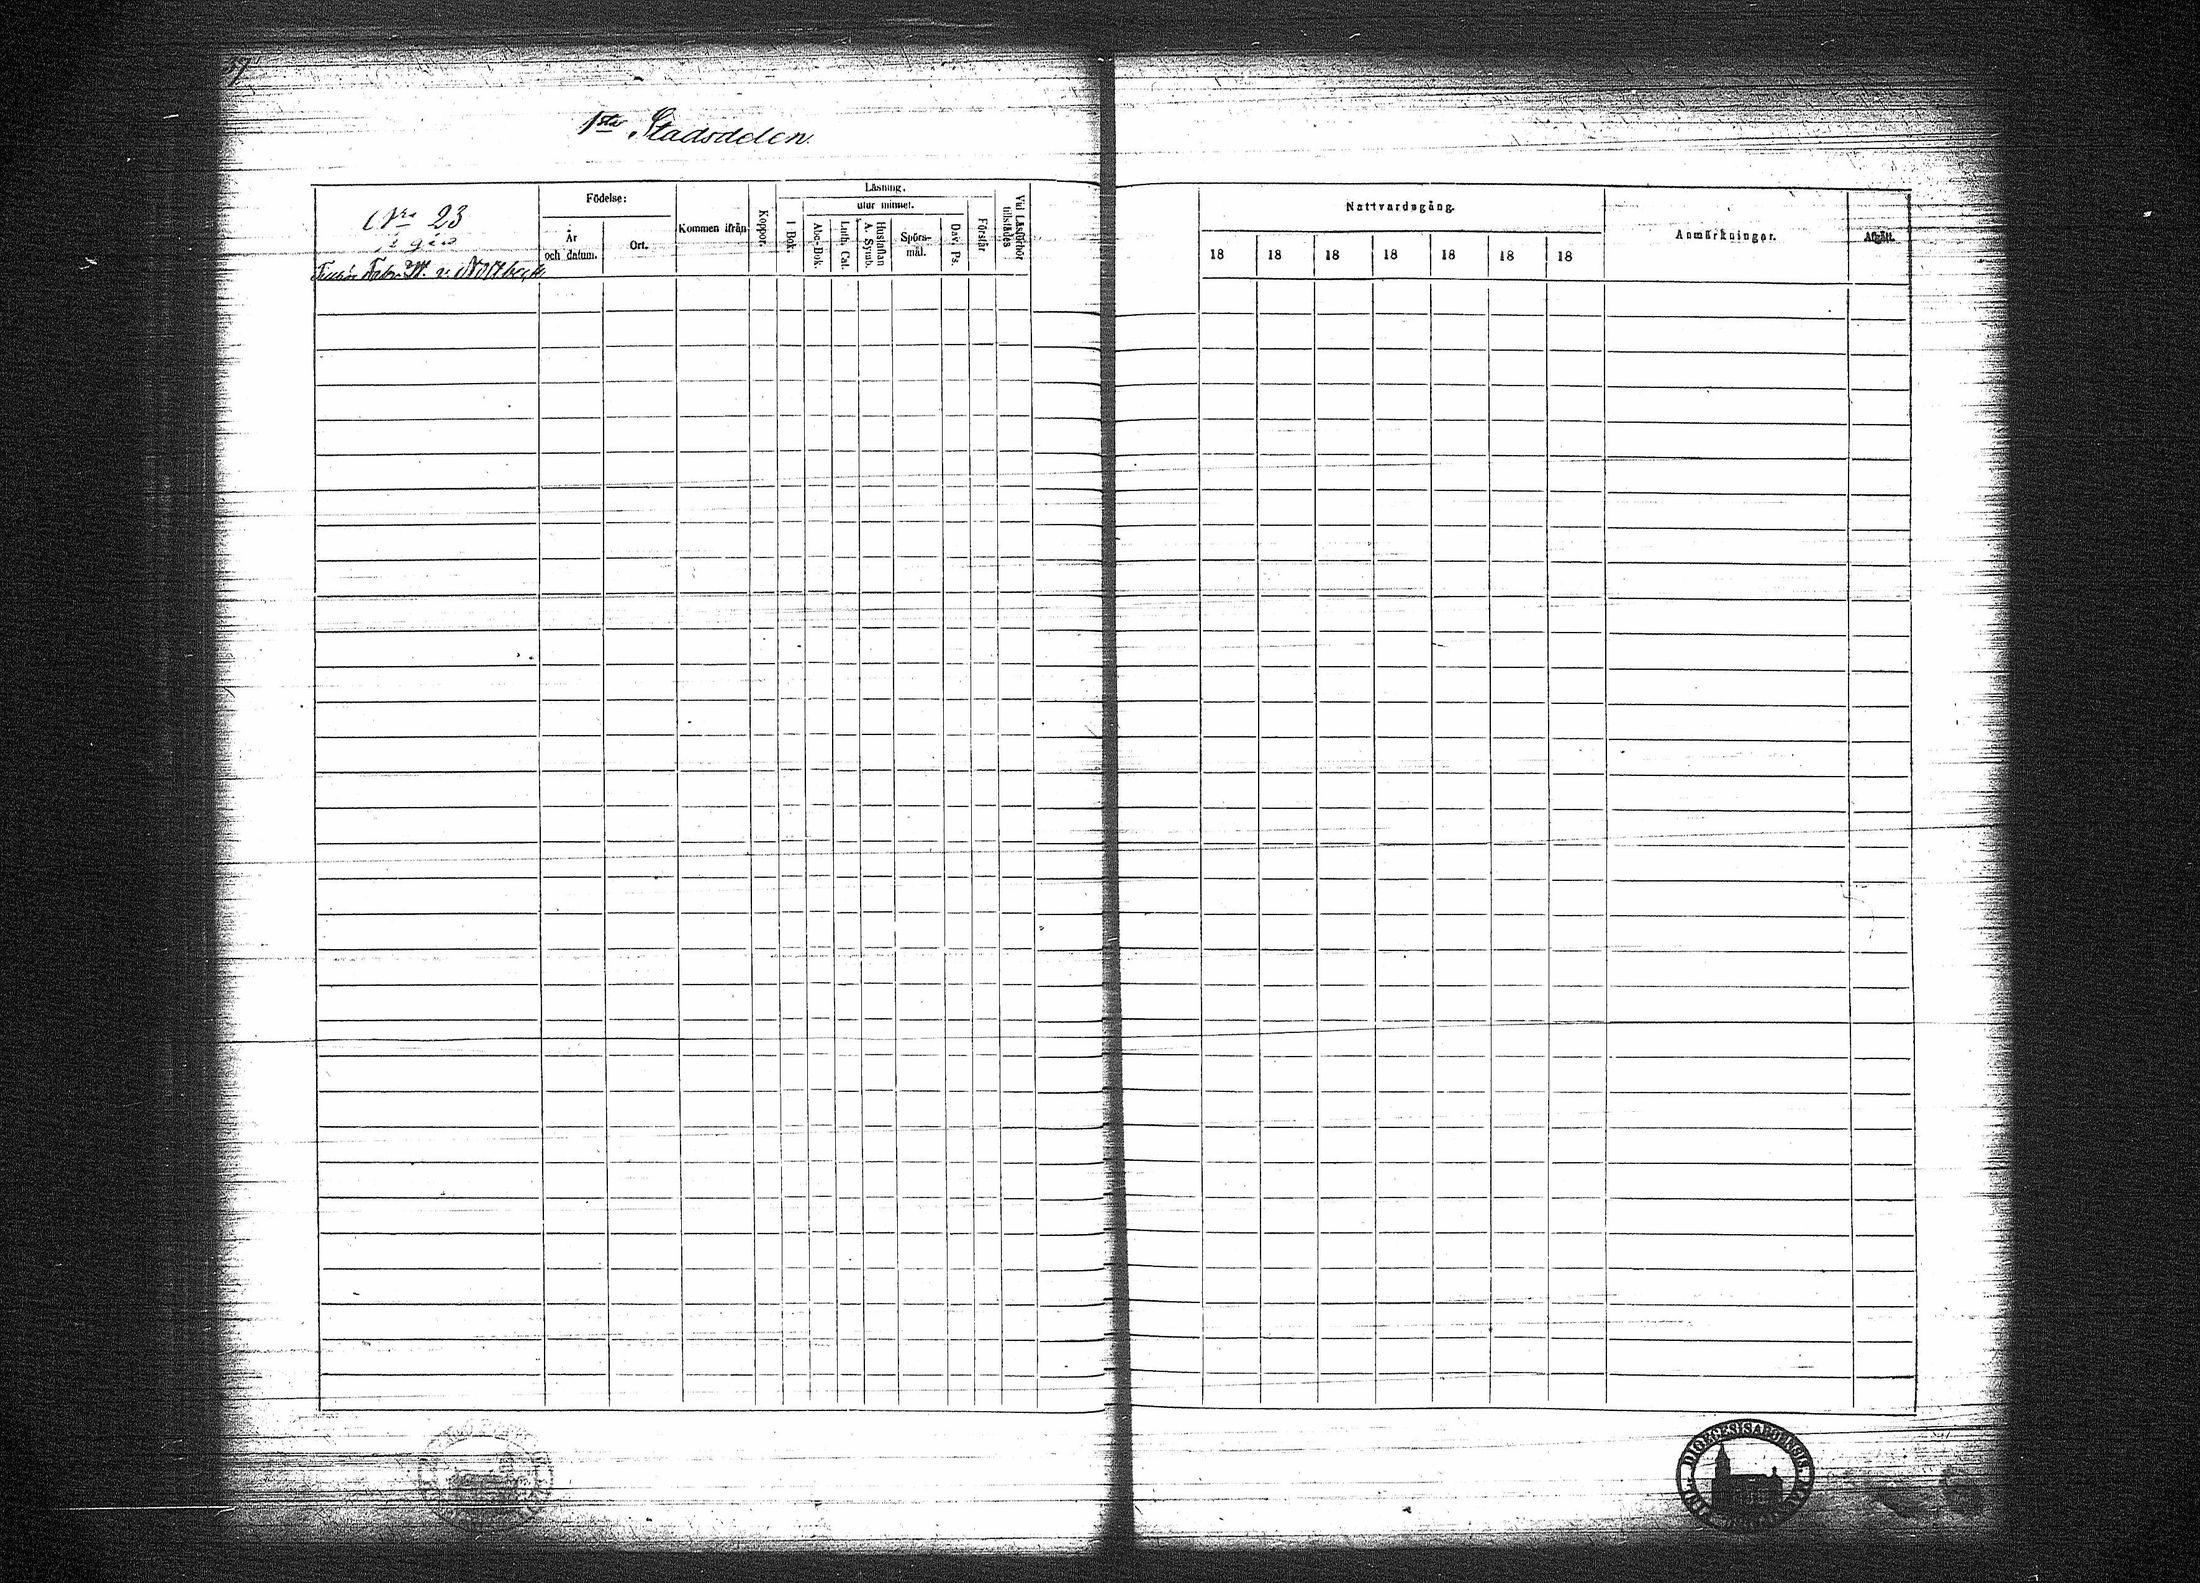 1sta Stadsdelen.
Nro 23
Födelse:
År
och datum.
Ort.
Kommen ifrån
Koppor.
Läsning,
utur minnet.
I Bok.
Abc-Bok.
Luth. Cat.
Hustaflan
A. Symb.
Spörs-
mål.
Dav. Ps.
Förstår
Vid Läsförhör
tillstädes
Nattvardsgång.
18 18 18 18 18 18 18
Anmärkningar.
Afgått.
DIOECESIS ABOENSIS